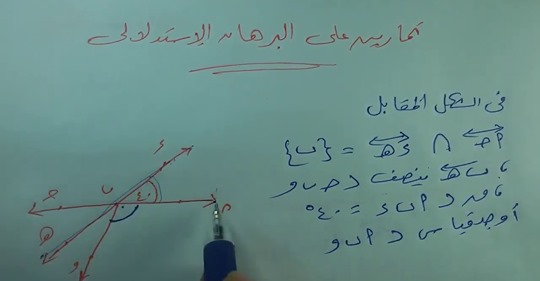 تمارين على البرهان الإستدلالى
فى الشكل المقابل
أحـ ∩ ءهـ = {ب}
، بهـ ينصف د حـ ب و
، ق د أ ب ء = ٤٠°
أوجد قياس د أ ب و
ء
حـ
ب
٤٠
أ
هـ
و